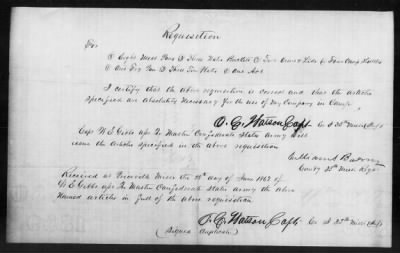 Requisition
For
8 Eight Mess Pans 3 Three Water Buckets 2 Two Ovens & Lids 4 Four Camp Kettles
1 One Fry Pan 3 Three Tin Plates 1 One Axe
I certify that the above requisition is correct and that the articles
specified are absolutely necessary for the use of my Company in Camp
O. C. Watson Capt Co I 35th Miss
Capt W E Gibbs Master Confederate States Army will
issue the articles specified in the above requisition
William S Barry
35th Miss Regt
Received at Miss the day of June 1862 of
W E Gibbs Master Confederate States Army the above
named articles in full of the above requisition
O. C. Watson Capt Co I 35th Miss
(Signed Duplicate)